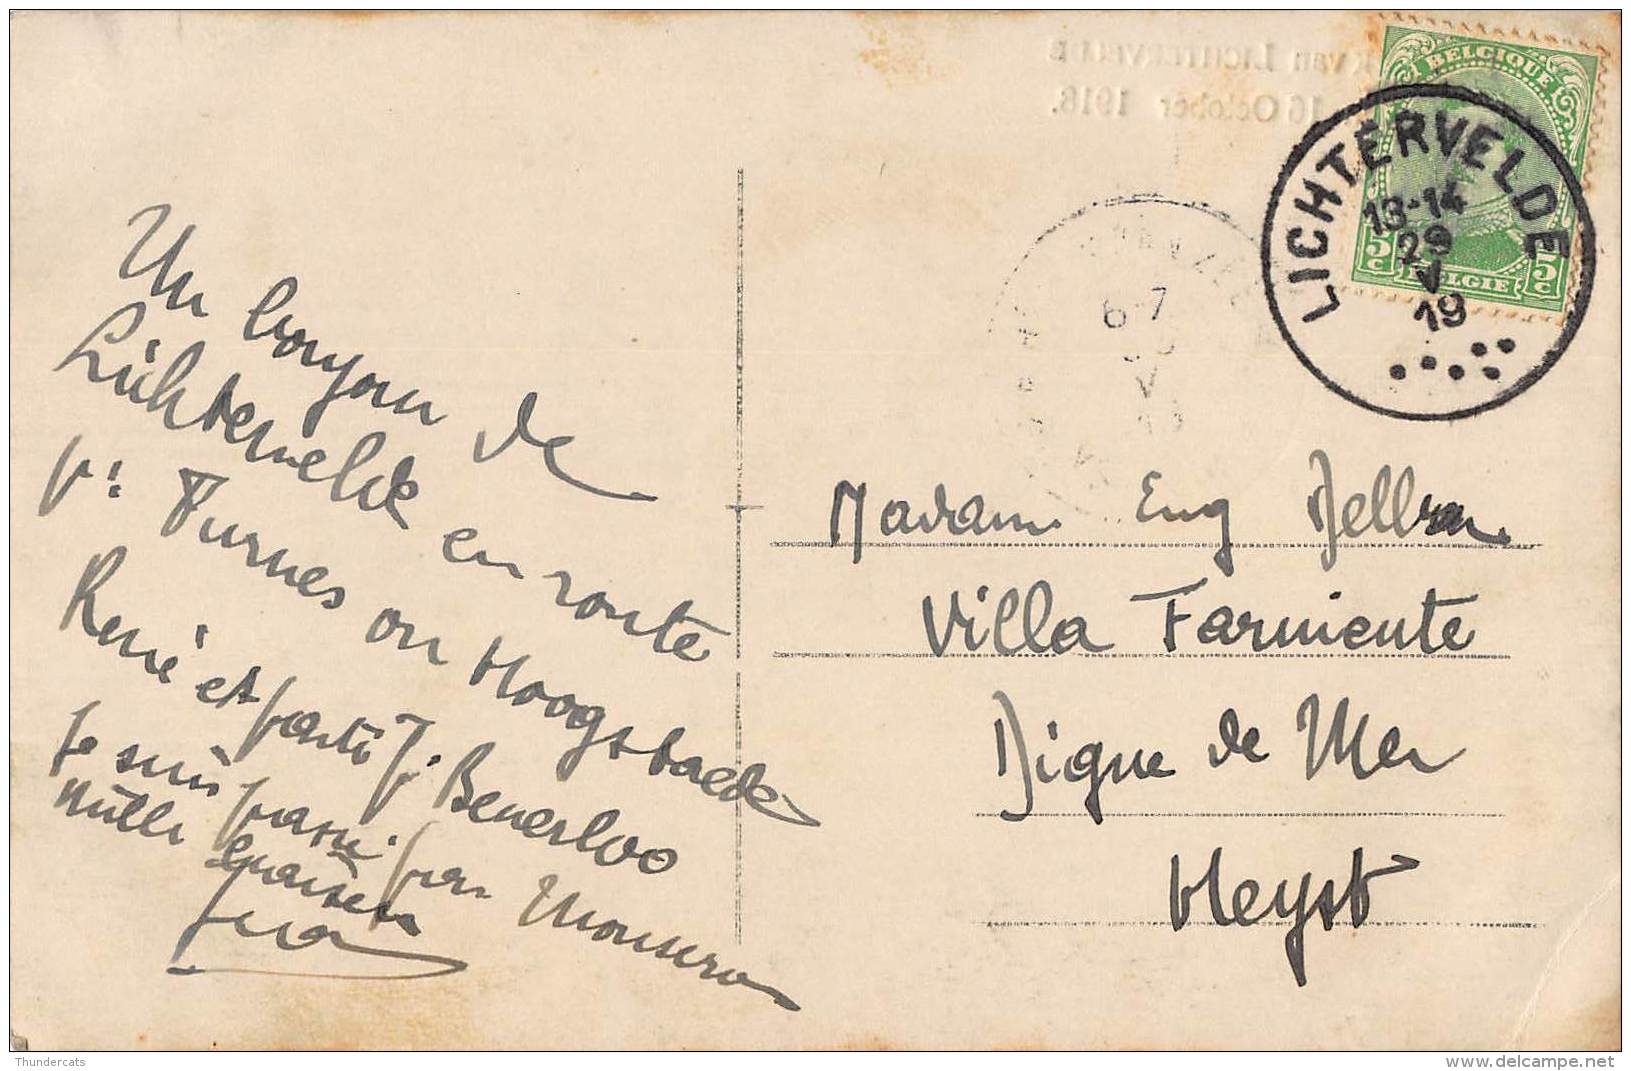 van LICHTERVELDE
16 October 1918.
BELGIQUE
5c BELGIE 5c
LICHTERVELDE
13-14
29
V
19
6-7
V
Un bonjour de
Lichtervelde en route
pr Furnes ou Hoogstaede
René est parti J. Beverloo
Je suis passé par Mouscron
Mille baisers
Madame Eug Delbran
Villa Farniente
Digue de Mer
Heyst
Thundercats
www.delcampe.net